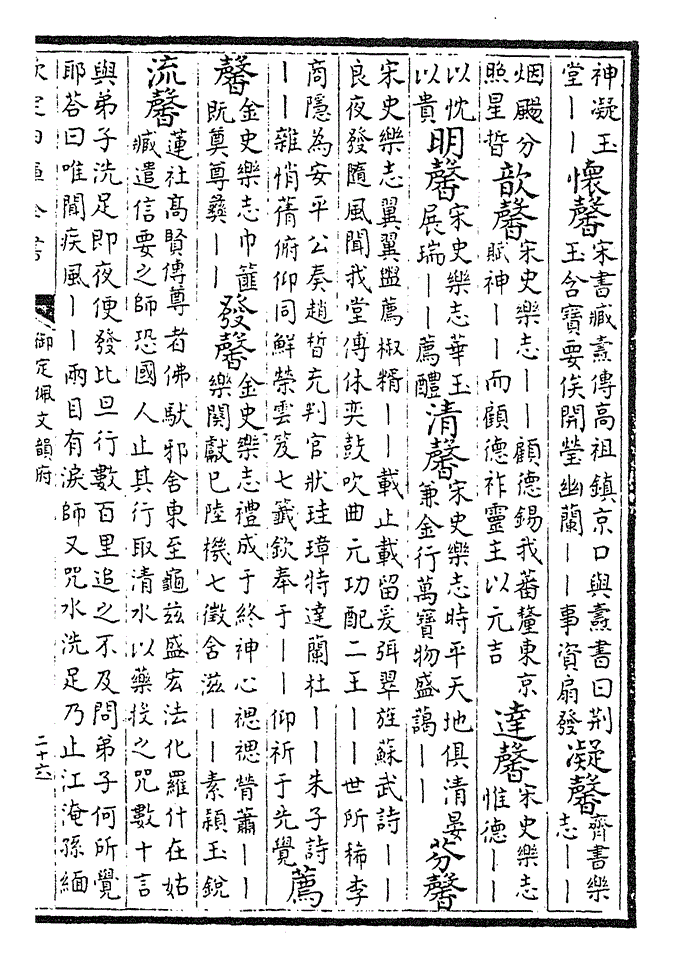 神凝玉堂——懷馨宋書臧燾傳高祖鎮京口與燾書曰荆玉含寶要俟開瑩幽蘭——事資扇發凝馨齊書樂志——
烟颺分照星晳歆馨宋史樂志——顧德錫我蕃釐東京賦神——而顧德祚靈主以元吉達馨宋史樂志惟德——
以忱以貴明馨宋史樂志華玉展瑞——薦醴清馨宋史樂志時平天地俱清晏兼金行萬寶物盛藹——芬馨
宋史樂志翼翼盥薦椒糈——載止載留爰弭翠旌蘇武詩——
良夜發隨風聞我堂傅休奕鼓吹曲元功配二王——世所稀李
商隱為安平公奏趙晳充判官狀珪璋特達蘭杜——朱子詩
——雜悄蒨俯仰同鮮榮雲笈七籤欽奉于——仰祈于先覺薦
馨金史樂志巾篚既奠尊彝——發馨金史樂志禮成于終神心禗禗膋蕭——樂闋獻已陸機七徵舍滋——素穎玉銳
流馨蓮社高賢傳尊者佛馱邪舍東至龜兹盛宏法化羅什在姑臧遣信要之師恐國人止其行取清水以藥投之咒數十言
與弟子洗足即夜便發比旦行數百里追之不及問弟子何所覺
耶荅曰唯聞疾風——兩目有淚師又咒水洗足乃止江淹孫緬
欽定四庫全書
御定佩文韻府
二十六